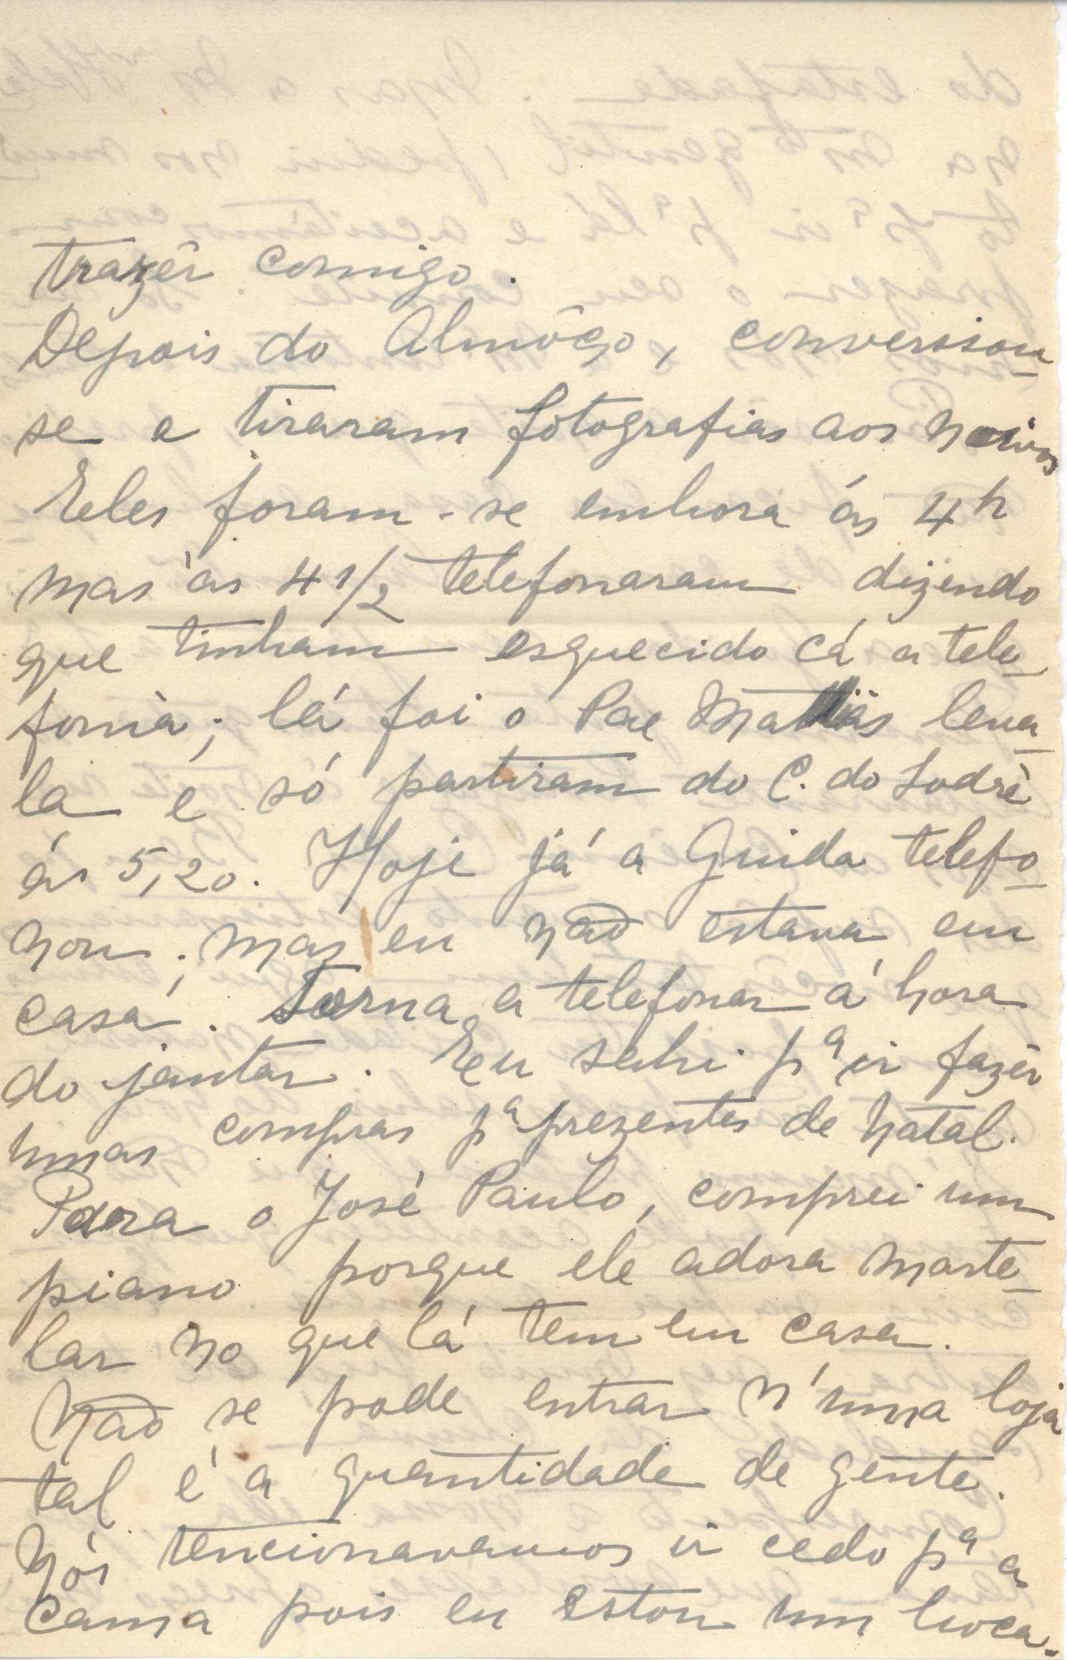 trazêr comigo.
Depois do Almôço, conversou-
se e tiraram fotografias aos noivos
Eles foram-se embora ás 4h
mas ás 4 1/2 telefonaram dizendo
que tinham esquecido cá a tele-
fonia; lá foi o Pae Mattias leva-
la e só partiram do C. do Sodré
ás 5,20. Hoje já a Guida telefo-
nou; mas eu não estava em
casa. Torna a telefonar á hora
do jantar. Eu sahi pª ir fazêr
umas compras pª prezentes de Natal.
Para o José Paulo, comprei um
piano porque ele adora marte-
lar no que lá tem em casa.
Não se pode entrar n'uma loja
tal é a quantidade de gente.
Nós tencionavamos ir cedo pª a
cama pois eu estou um boca-